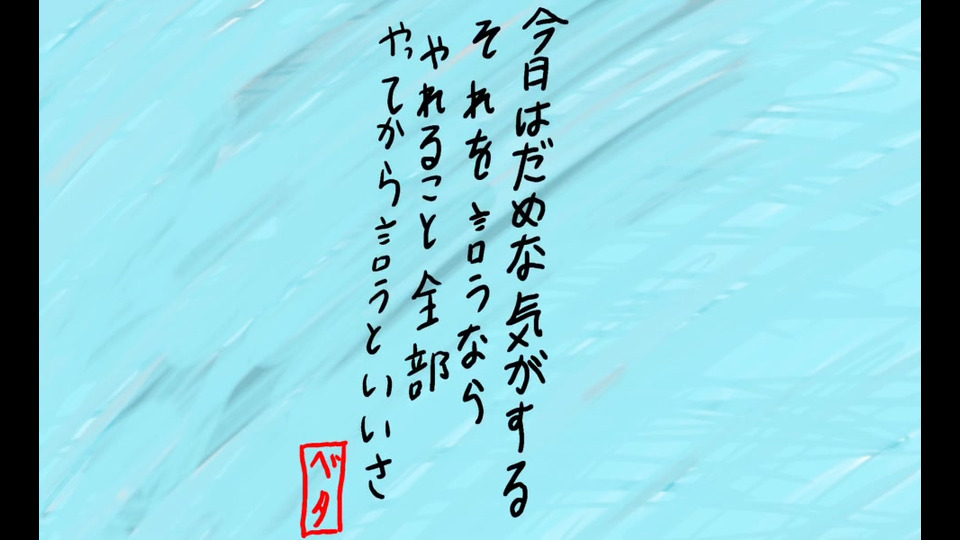 今日はだめな気がする
それを言うなら
やれること全部
やってから言うといいさ
ベタ